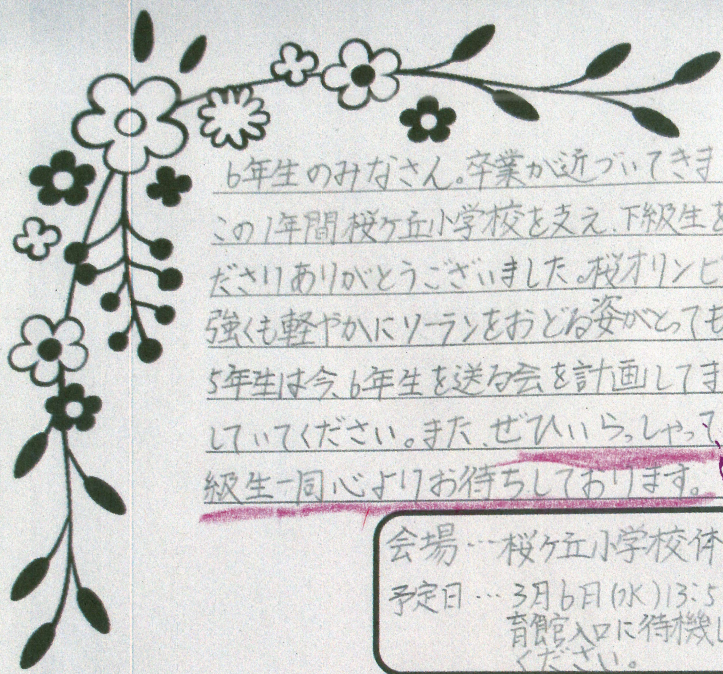 6年生のみなさん。卒業が近づいてきま
この1年間桜ヶ丘小学校を支え、下級生を
ださりありがとうございました。桜オリンピ
強くも軽やかにソーランをおどる姿がとっても
5年生は今、6年生を送る会を計画してま
していてください。また、ぜひいらっしゃって
級生一同心よりお待ちしております。
会場…桜ヶ丘小学校体
予定日…3月6日(水)13:5
育館入口に待機し
ください。